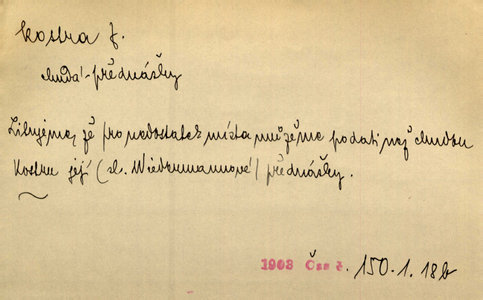 kostra f.
chudá - přednášky
Litujeme, že pro nedostatek místa můžeme podati než chudou
kostru její (sl. Wiedermannové) přednášky.
1903 Čas č. 150.1.18b